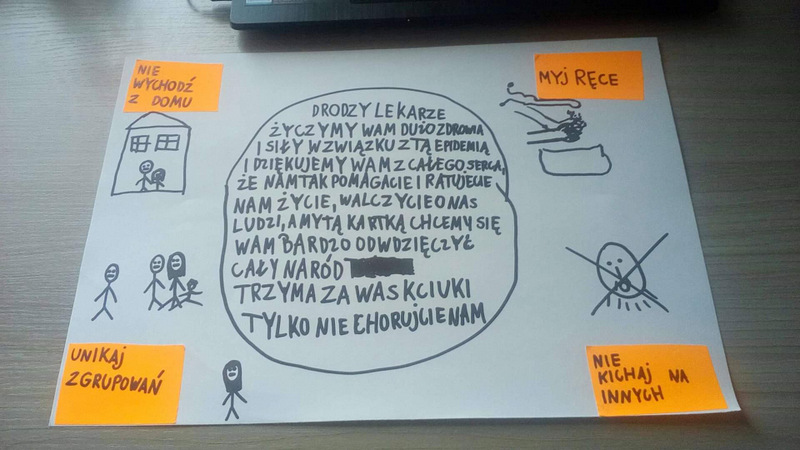 NIE
WYCHODŹ
Z DOMU
MYJ RĘCE
DRODZY LEKARZE
ŻYCZYMY WAM DUŻO ZDROWIA
I SIŁY W ZWIĄZKU Z TĄ EPIDEMIĄ
I DZIĘKUJEMY WAM Z CAŁEGO SERCA,
ŻE NAM TAK POMAGACIE I RATUJECIE
NAM ŻYCIE, WALCZYCIE O NAS
LUDZI, A MY TĄ KARTKĄ CHCEMY SIĘ
WAM BARDZO ODWDZIĘCZYĆ
CAŁY NARÓD
TRZYMA ZA WAS KCIUKI
TYLKO NIE CHORUJCIE NAM
UNIKAJ
ZGRUPOWAŃ
NIE
KICHAJ NA
INNYCH